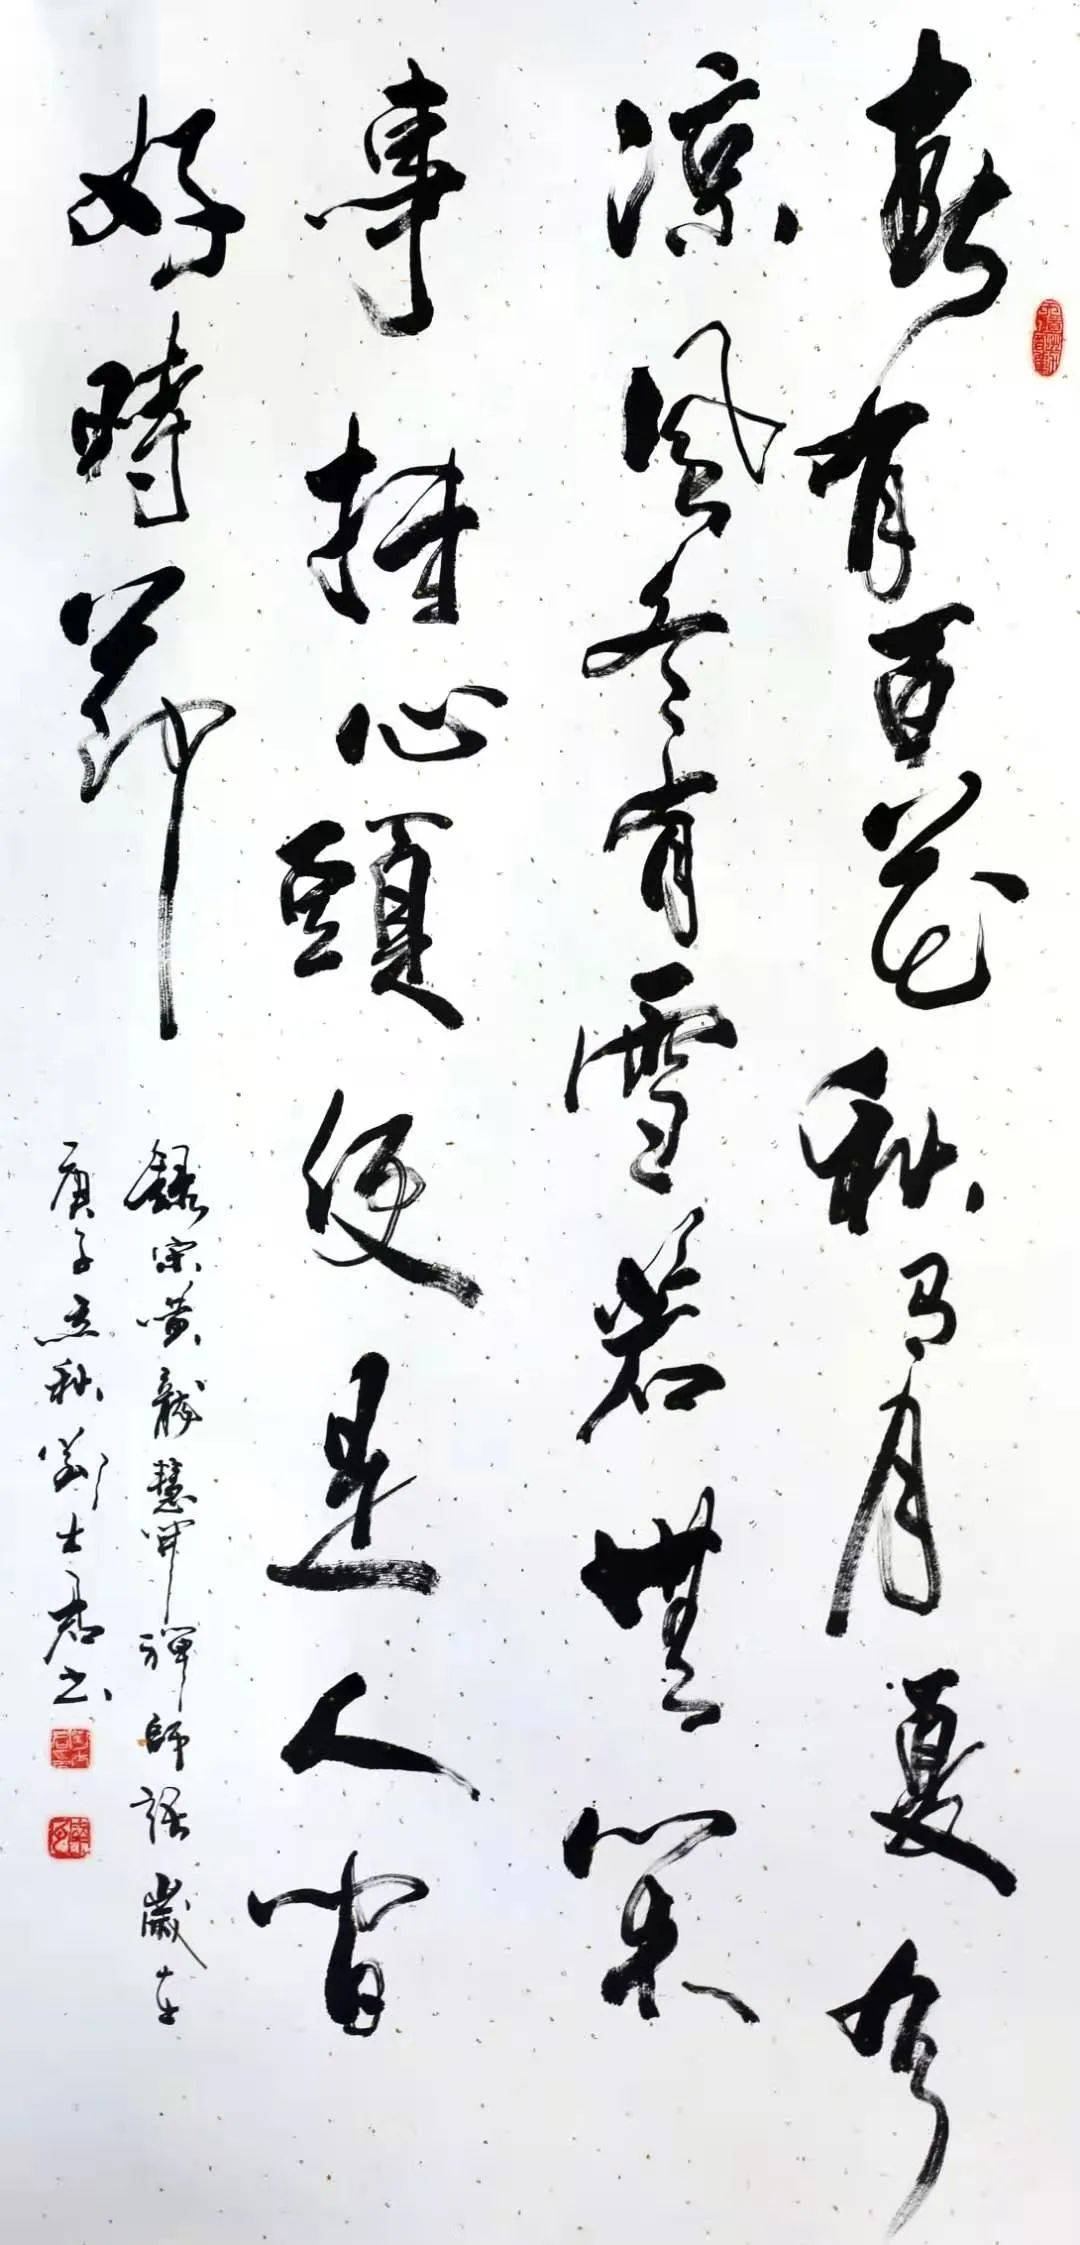 春有百花秋有月夏有
涼風冬有雪若無閑
事挂心頭便是人間
好時節
錄宋黄龍慧開禪師語歲在
庚子立秋劉士君书